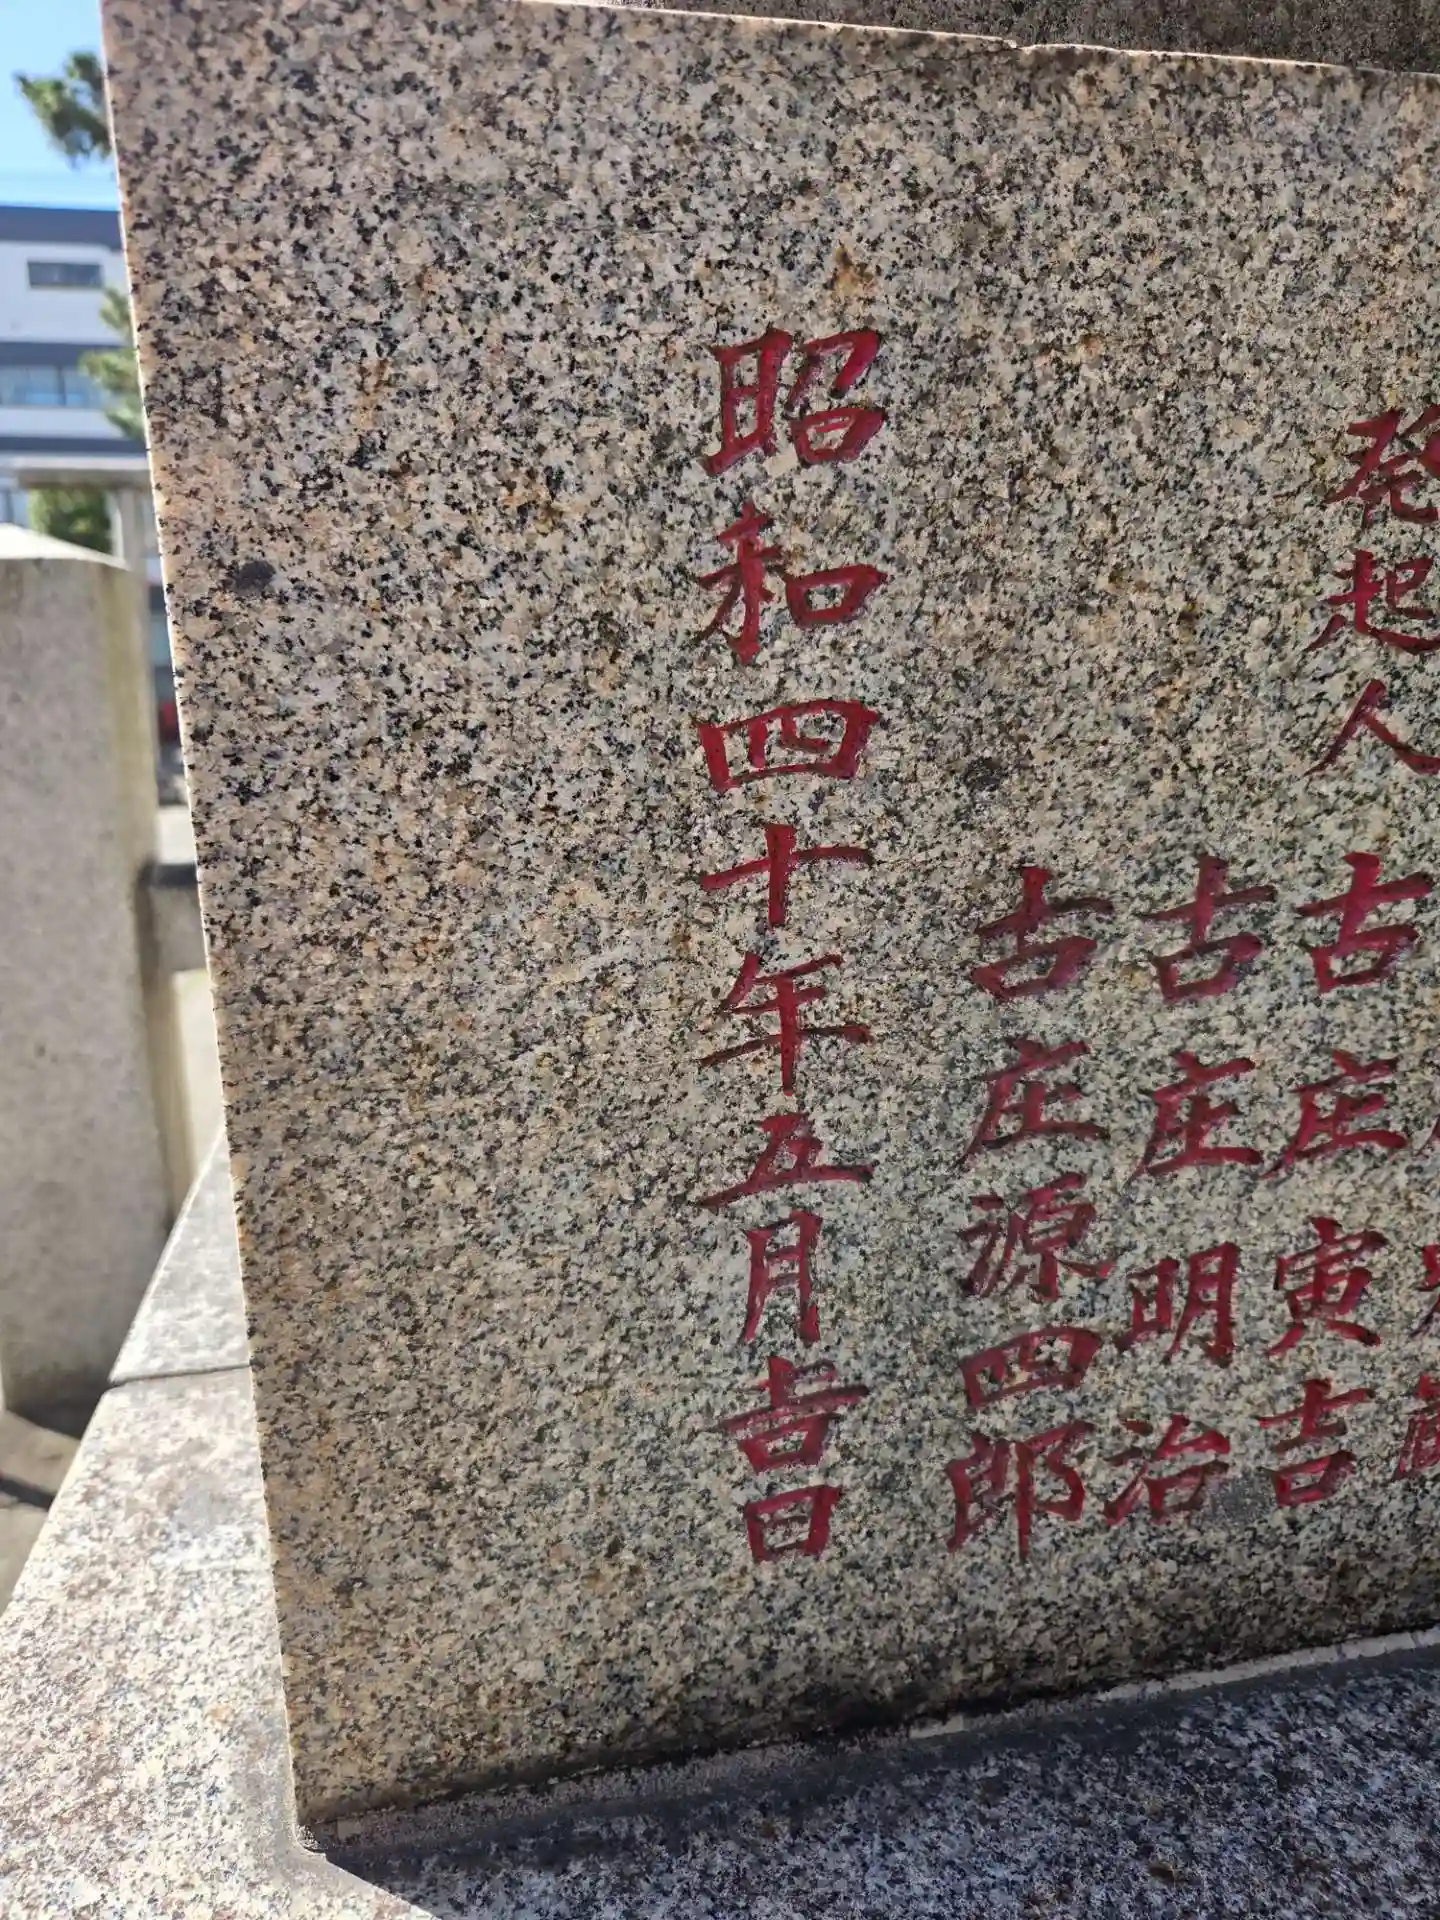 発起人
古庄寅吉
古庄明治
古庄源四郎
昭和四十年五月吉日